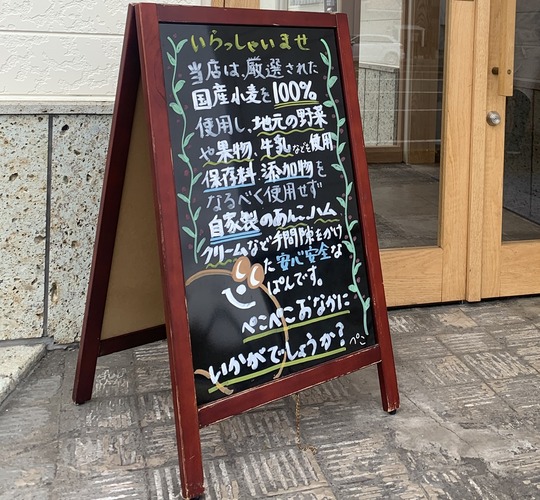 いらっしゃいませ
当店は、厳選された
国産小麦を100%
使用し、地元の野菜
や果物、牛乳などを使用
保存料、添加物を
なるべく使用せず
自家製のあんこ、ハム
クリームなど手間隙をかけ
た安心安全な
ぱんです。
ぺこぺこおなかに
いかがでしょうか?
ぺこ